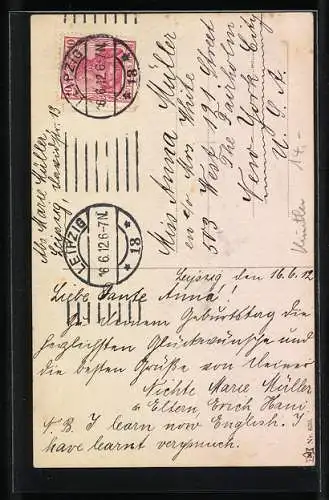 LEIPZIG
16.6.12.6-7N.
* 13 *
LEIPZIG
16.6.12.6-7N.
* 13 *
Abs. Marie Müller
Leipzig,
Miss Anna Müller
c/o Mrs White
503 West 121 Street
The Fairholm
New York-City
U. S. A.
14.-
Künstler
Leipzig, den 16.6.12
Liebe Tante Anna!
Zu deinem Geburtstag die
herzlichsten Glückwünsche und
die besten Grüße von Deiner
Nichte Marie Müller
u Eltern, Erich Hani
N. B. I learn now English. I
have learnt verymuch.